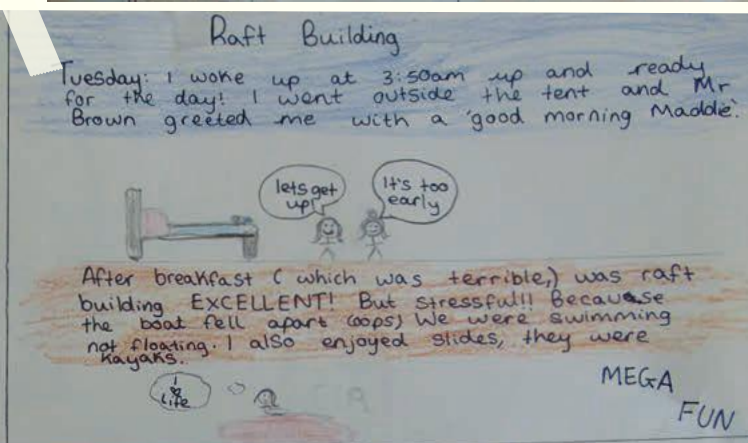 Raft Building
Tuesday: I woke up at 3:50am up and ready
for the day! I went outside the tent and Mr
Brown greeted me with a 'good morning Maddie'.
lets get
up!
It's too
early
After breakfast (which was terrible,) was raft
building EXCELLENT! But stressful!! Because
the boat fell apart (oops) We were swimming
not floating. I also enjoyed slides, they were
kayaks.
life
MEGA
FUN